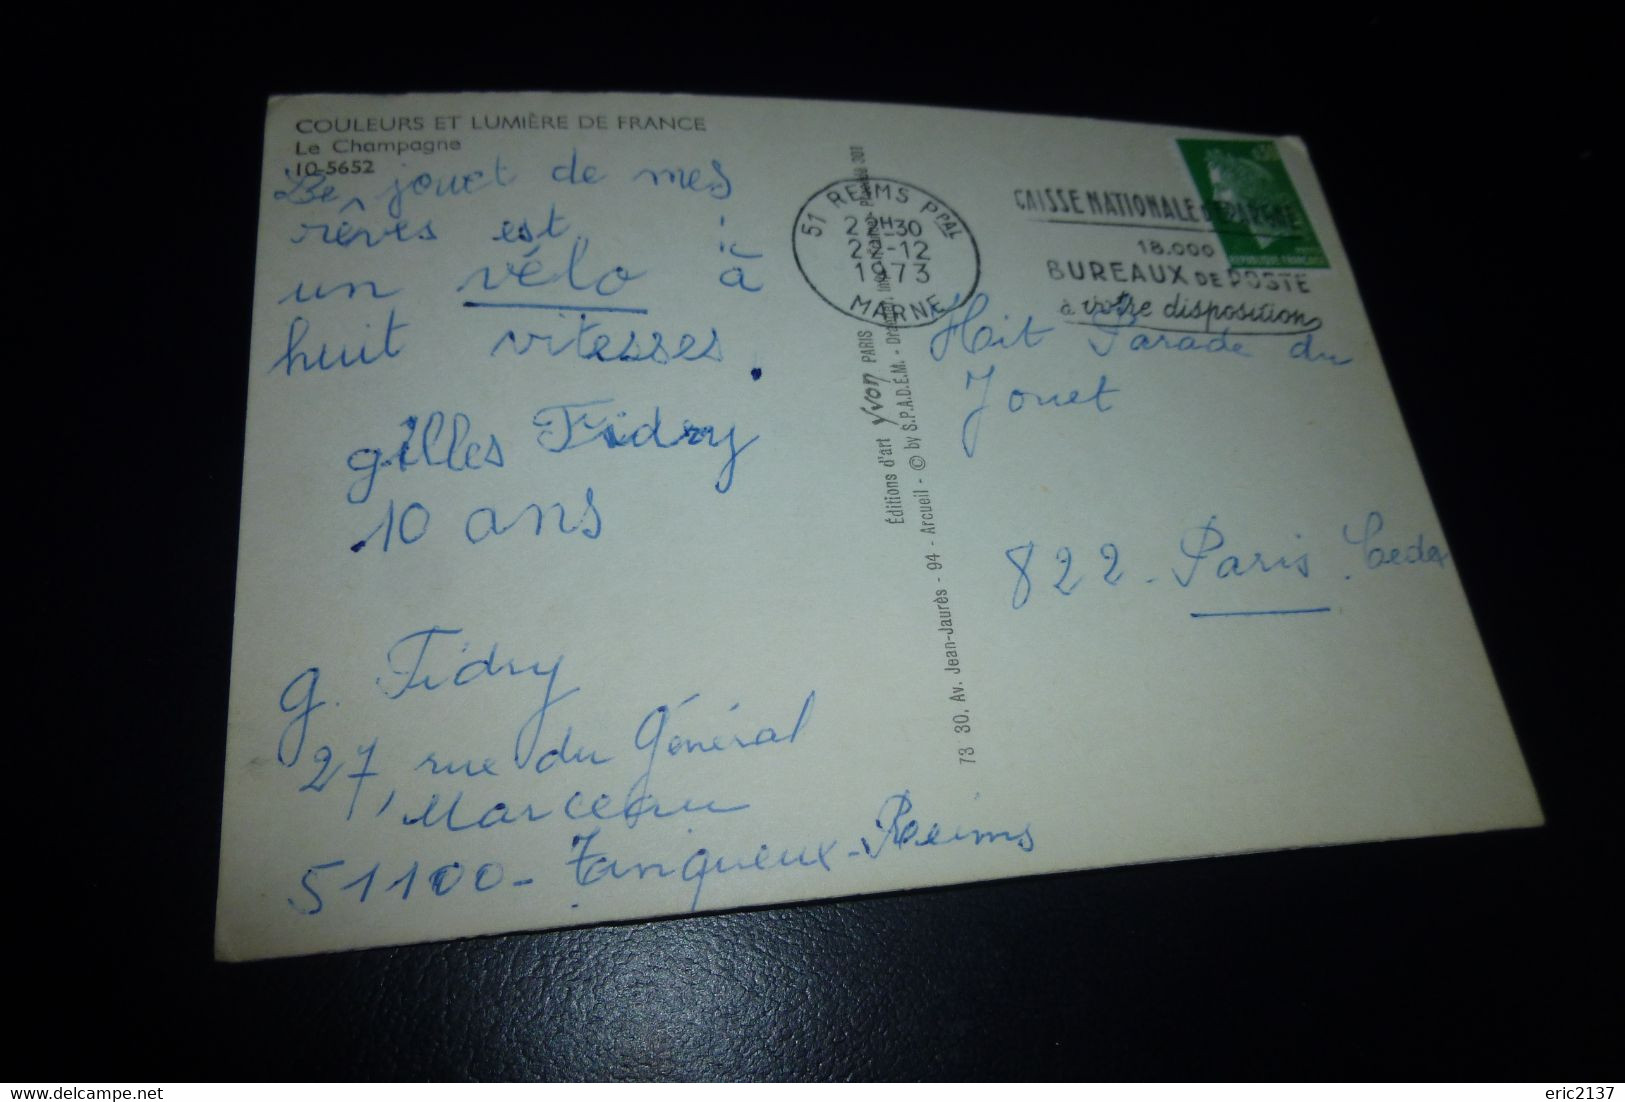 COULEURS ET LUMIÈRE DE FRANCE
Le Champagne
10-5652
Le jouet de mes
rêves est :
un vélo à
huit vitesses.
gilles Fidry
10 ans
g. Fidry
27, rue du Général
Marceau
51100 - Tinqueux - Reims
51 REIMS Ppal
22H30
12
1973
MARNE
CAISSE NATIONALE D'EPARGNE
18.000
BUREAUX DE POSTE
à votre disposition
REPUBLIQUE FRANCAISE
Hit Parade du
Jouet
822 - Paris Cedex
Éditions d'art Yvon PARIS
73 30, Av. Jean-Jaurès - 94 - Arcueil - © by S.P.A.D.E.M. -
eric2137